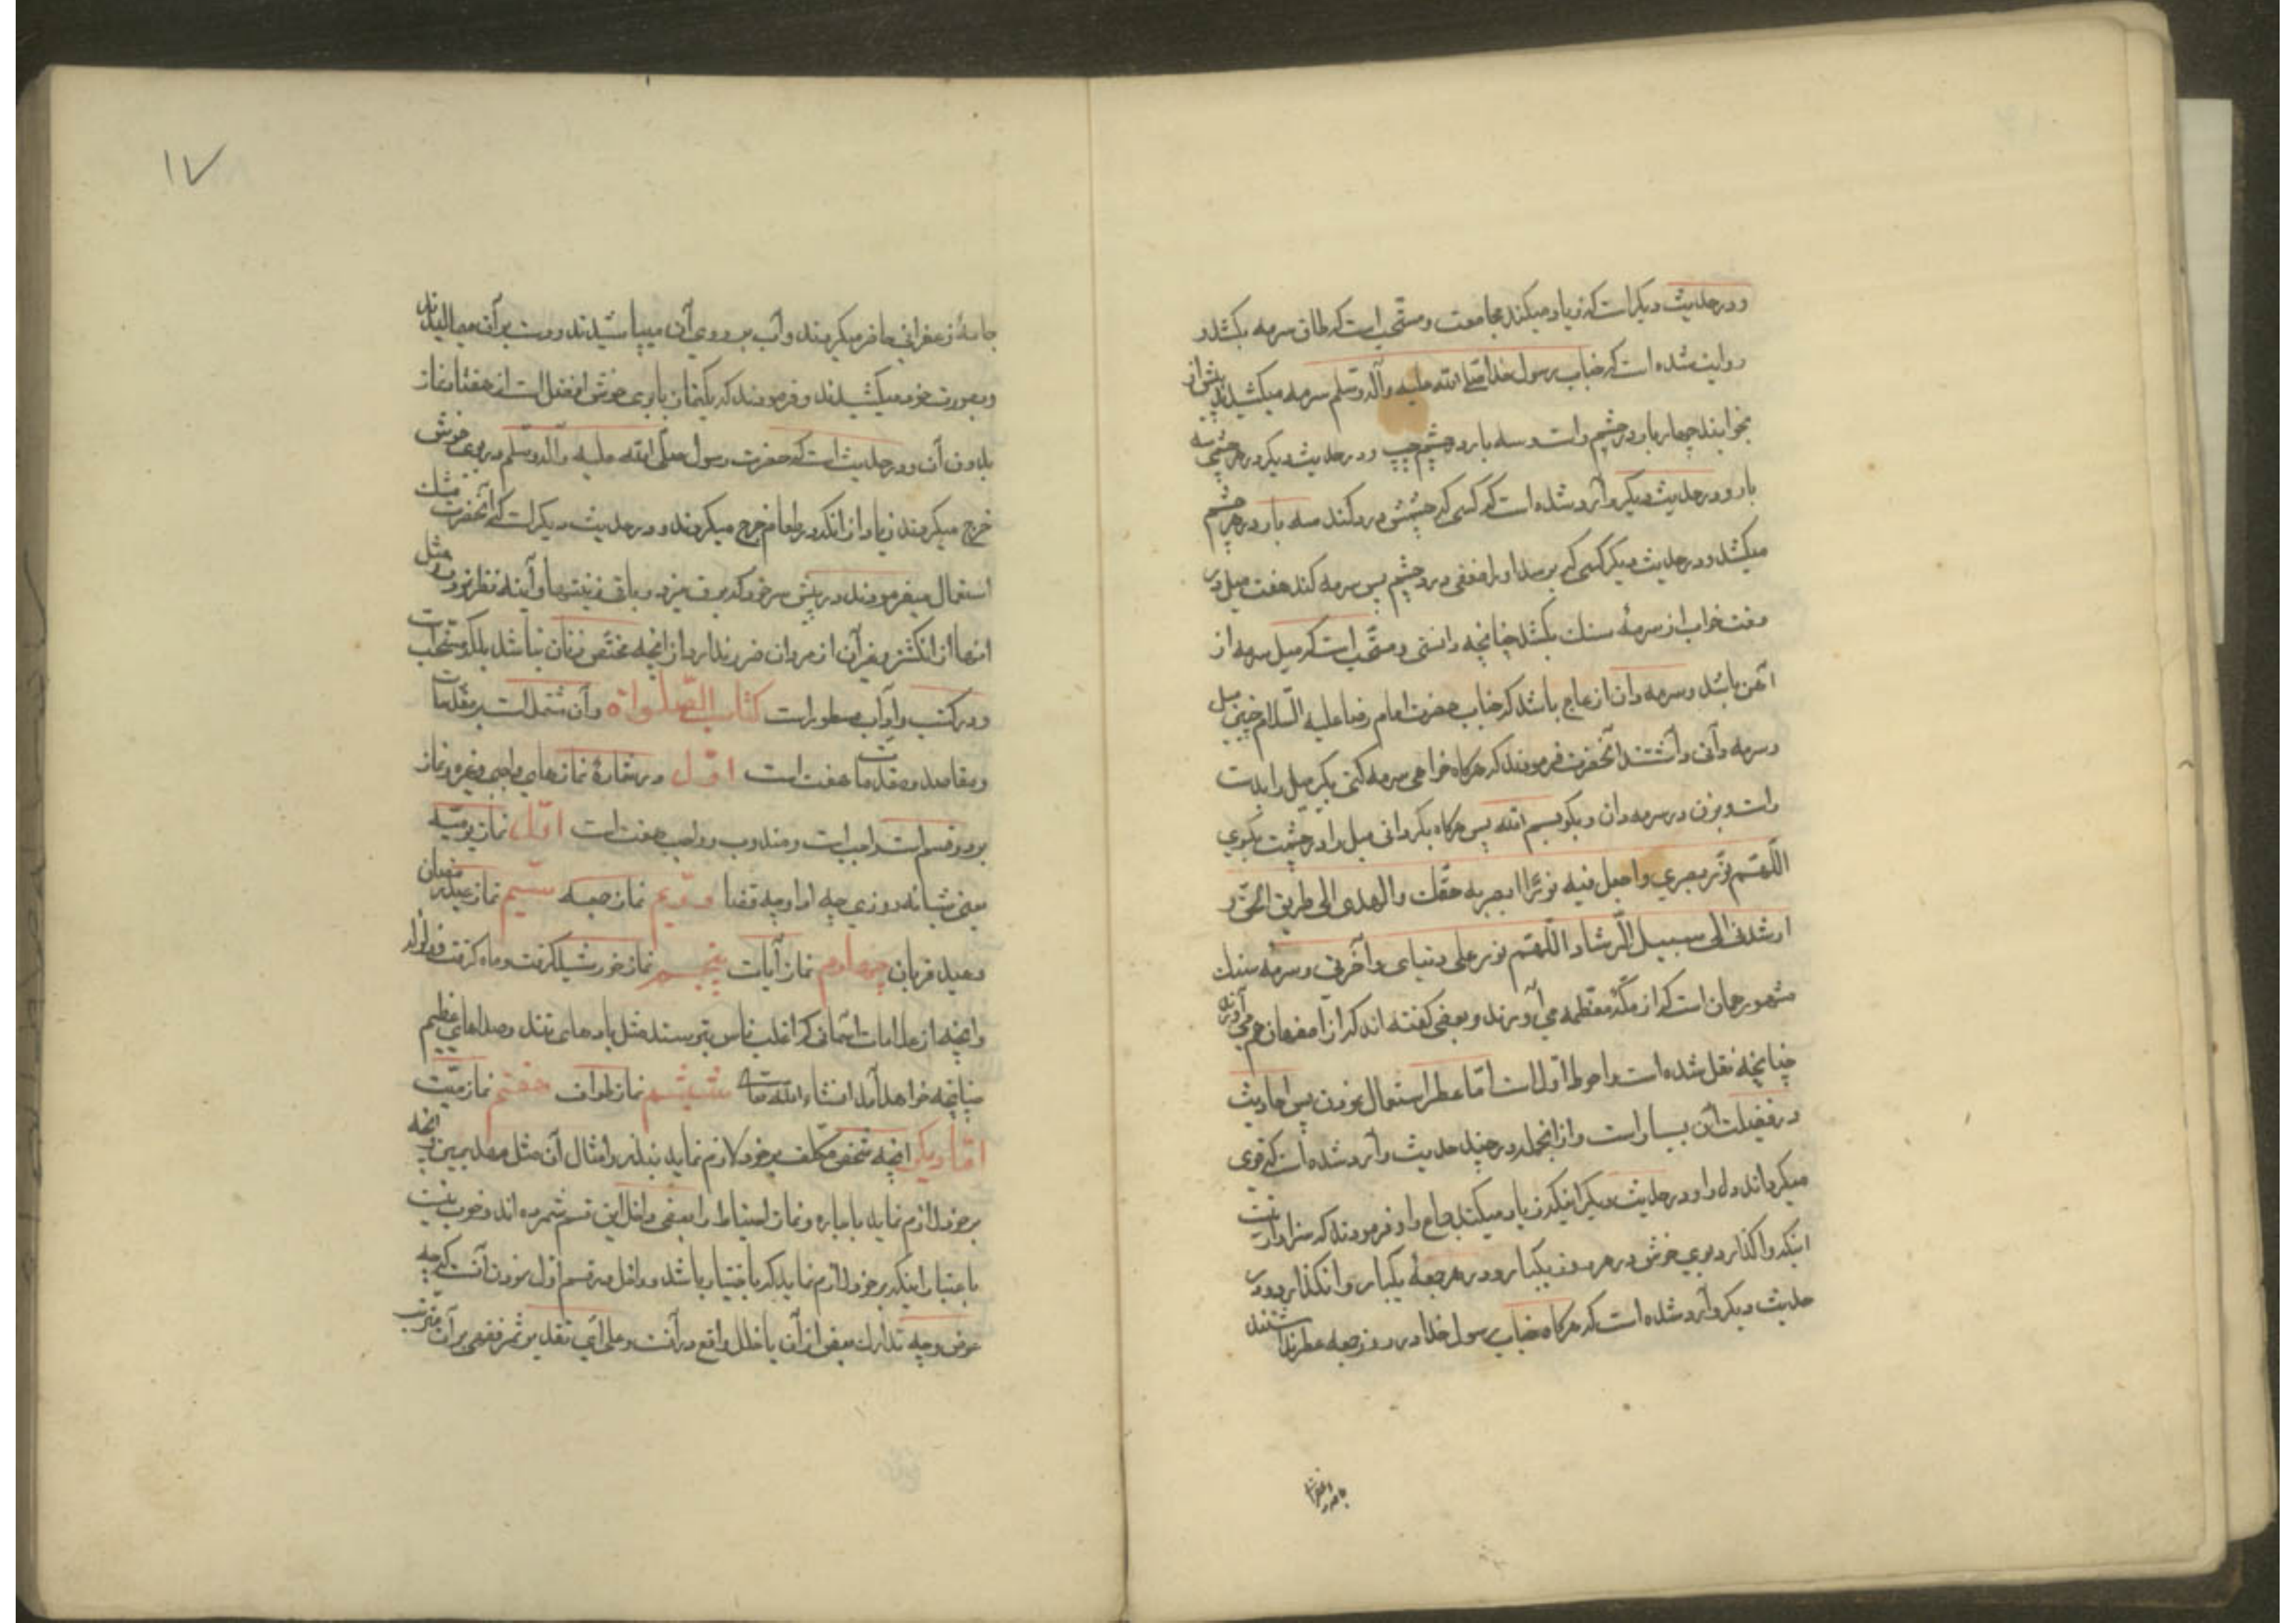 ودر حدیث دیکر است که زیاد میکند مجامعت ومستحب است که طاق سرمه بکشد و
روایت شده است که جناب رسول خدا صلی الله علیه وآله وسلم سرمه میکشیدند پیش از
بخوابند چهار بار در چشم راست وسه بار در چشم چپ ودر حدیث دیکر در هر چشمی سه
بار ودر حدیث دیکر وارد شده است که کسی که چشمش درد کند سه بار در هر چشم
میکشد ودر حدیث دیکر کسی که برسد اورا ضعفی در چشم پس سرمه کند هفت میل در
وقت خواب از سرمهٔ سنك بکشد چنانچه دانستی ومستحب است که میل سرمه از
آهن باشد وسرمه دان از عاج باشد که جناب حضرت امام رضا علیه السلام چنین میل
وسرمه دانی داشتند آنحضرت فرمودند که هرکاه خواهی سرمه کنی بکیر میل را بدست
راست وبزن در سرمه دان وبکو بسم الله پس هرکاه بکردانی میل را در چشمت بکوی
اللّهم نوّر بصری واجعل فیه نوراً ابصر به حقّك واهدنی الی طریق الحقّ و
ارشدنی الی سبیل الرشاد اللّهم نور علی دنیای وآخرتی وسرمه سنك
مشهور همان است که از مکّه معظمه می آورند وبعضی کفته اند که از اصفهان هم می آورند
چنانچه نقل شده است واحوط اول است امّا عطر استعمال نمودن پس احادیث
در فضیلت آن بسیار است واز انجمله در چند حدیث وارد شده است که قوی
میکرداند دل را ودر حدیث دیکر اینکه زیاد میکند جماع را وفرمودند که سزاوار نیست
اینکه واکذارد بوی خوش در هر روز یکبار ودر هر جمعه یکبار وانکذارد ودر
حدیث دیکر وارد شده است که هرکاه جناب رسول خدا در روز جمعه عطر نداشتند
۱۷
جامهٔ زعفرانی حاضر میکردند وآب بر روی آن میپاشیدند ودست بر آن میمالیدند
وبصورت خود میکشیدند وفرمودند که یکنماز با بوی خوش افضل است از هفتاد نماز
بدون آن ودر حدیث است که حضرت رسول صلی الله علیه وآله وسلم در بوی خوش
خرج میکردند زیاد از انکه در طعام خرج میکردند ودر حدیث دیکر است که آنحضرت مشك
استعمال میفرمودند در پیش سر خود که برق میزد وباقی زینتها وآینه نظر نمودن مثل
اینها از انکشتر وغیر آن از مردان ضرر ندارد از انچه مختص زنان نباشد بلکه مستحب است
ودر کتب وآداب مسطور است کتاب الصّلواة وآن مشتمل است بر مقدمات
ومقاصد ومقدمات هفت است اوّل در شمارهٔ نمازهای واجبی وغیره ونماز
بر دو قسم است واجب است ومندوب وواجب هفت است اوّل نماز یومیّه
یعنی شبانه روزی چه ادا وچه قضا دویّم نماز جمعه سیّیم نماز عید رمضان
وعید قربان چهارم نماز آیات پنجم نماز خورشید کرفت وماه کرفت وزلزله
وانچه از علامات اسمانی که اغلب ناس بترسند مثل بادهای تند وصداهای عظیم
چنانچه خواهد آمد انشاء الله تعا ششیم نماز طواف هفتم نماز میّت
امّا دیکر انچه شخص مکلف بر خود لازم نماید بنذر وامثال آن مثل عهد ویمین یا انچه
بر خود لازم نماید باجاره ونماز احتیاط را بعضی داخل این قسم شمرده اند وخوب نیست
باعتبار اینکه بر خود لازم نماید که باختیار باشد وداخل در قسم اوّل نمودن آنست که چه
عوض وچه تدارك بعض از آن یا خلل واقع در آنست وعلی ای تقدیر ثمر فقهی بر آن مترتب